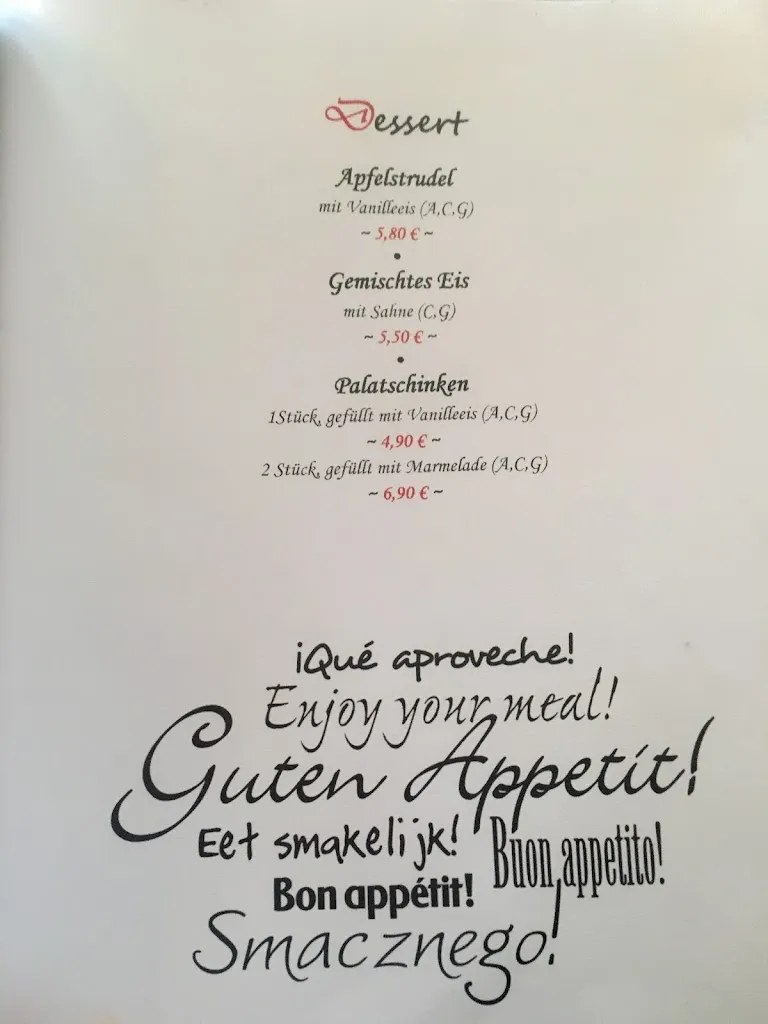 Dessert
Apfelstrudel
mit Vanilleeis (A,C,G)
~ 5,80 € ~
•
Gemischtes Eis
mit Sahne (C,G)
~ 5,50 € ~
•
Palatschinken
1Stück, gefüllt mit Vanilleeis (A,C,G)
~ 4,90 € ~
2 Stück, gefüllt mit Marmelade (A,C,G)
~ 6,90 € ~
¡Qué aproveche!
Enjoy your meal!
Guten Appetit!
Eet smakelijk!
Buon appetito!
Bon appétit!
Smacznego!